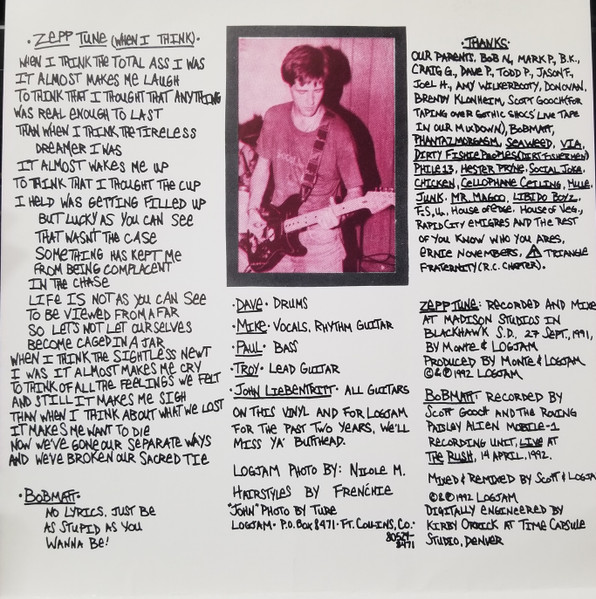 · ZEPP TUNE (WHEN I THINK) ·
WHEN I THINK THE TOTAL ASS I WAS
IT ALMOST MAKES ME LAUGH
TO THINK THAT I THOUGHT THAT ANYTHING
WAS REAL ENOUGH TO LAST
THAN WHEN I THINK THE TIRELESS
DREAMER I WAS
IT ALMOST WAKES ME UP
TO THINK THAT I THOUGHT THE CUP
I HELD WAS GETTING FILLED UP
BUT LUCKY AS YOU CAN SEE
THAT WASN'T THE CASE
SOMETHING HAS KEPT ME
FROM BEING COMPLACENT
IN THE CHASE
LIFE IS NOT AS YOU CAN SEE
TO BE VIEWED FROM A FAR
SO LET'S NOT LET OURSELVES
BECOME CAGED IN A JAR
WHEN I THINK THE SIGHTLESS NEWT
I WAS IT ALMOST MAKES ME CRY
TO THINK OF ALL THE FEELINGS WE FELT
AND STILL IT MAKES ME SIGH
THAN WHEN I THINK ABOUT WHAT WE LOST
IT MAKES ME WANT TO DIE
NOW WE'VE GONE OUR SEPARATE WAYS
AND WE'VE BROKEN OUR SACRED TIE
· BOBMATT ·
NO LYRICS, JUST BE
AS STUPID AS YOU
WANNA BE!
· DAVE · DRUMS
· MIKE · VOCALS, RHYTHM GUITAR
· PAUL · BASS
· TROY · LEAD GUITAR
· JOHN LIEBENTRITT · ALL GUITARS
ON THIS VINYL AND FOR LOGJAM
FOR THE PAST TWO YEARS, WE'LL
MISS YA' BUTHEAD.
LOGJAM PHOTO BY: NICOLE M.
HAIRSTYLES BY FRENCHIE
"JOHN" PHOTO BY TUDE
LOGJAM · P.O. BOX 8471 · FT. COLLINS, CO. ·
80524-
8471
· THANKS ·
OUR PARENTS, BOB N., MARK P., B.K.,
CRAIG G., DAVE P., TODD P., JASON F.,
JOEL H., AMY WILKERBOOTY, DONOVAN,
BRENDY KLONHEIM, SCOTT GOOCH (FOR
TAPING OVER GOTHIC SHOCS' LIVE TAPE
IN OUR MIXDOWN), BOBMATT,
PHANTAZMORGASM, SEAWEED, VIA,
DIRTY FISHIE PEOPLES (DIRT FISHERMEN)
PHILE 13, HESTER PRYNE, SOCIAL JOKE,
CHICKEN, CELLOPHANE CEILING,
JUNK, MR. MAGOO, LIBIDO BOYZ,
HOUSE OF EDGE, HOUSE OF VEG.,
RAPID CITY EMIGRES AND THE REST
OF YOU KNOW WHO YOU ARES,
ERNIE NOVEMBERS, TRIANGLE
FRATERNITY (R.C. CHAPTER).
ZEPP TUNE: RECORDED AND MIXE
AT MADISON STUDIOS IN
BLACKHAWK S.D., 27 SEPT., 1991,
BY MONTE & LOGJAM
PRODUCED BY MONTE & LOGJAM
©&℗ 1992 LOGJAM
BOBMATT: RECORDED BY
SCOTT GOOCH AND THE ROVING
PAISLEY ALIEN MOBILE-1
RECORDING UNIT, LIVE AT
THE RUSH, 14 APRIL, 1992.
MIXED & REMIXED BY SCOTT & LOGJA
©&℗ 1992 LOGJAM
DIGITALLY ENGINEERED BY
KIRBY ORRICK AT TIME CAPSULE
STUDIO, DENVER